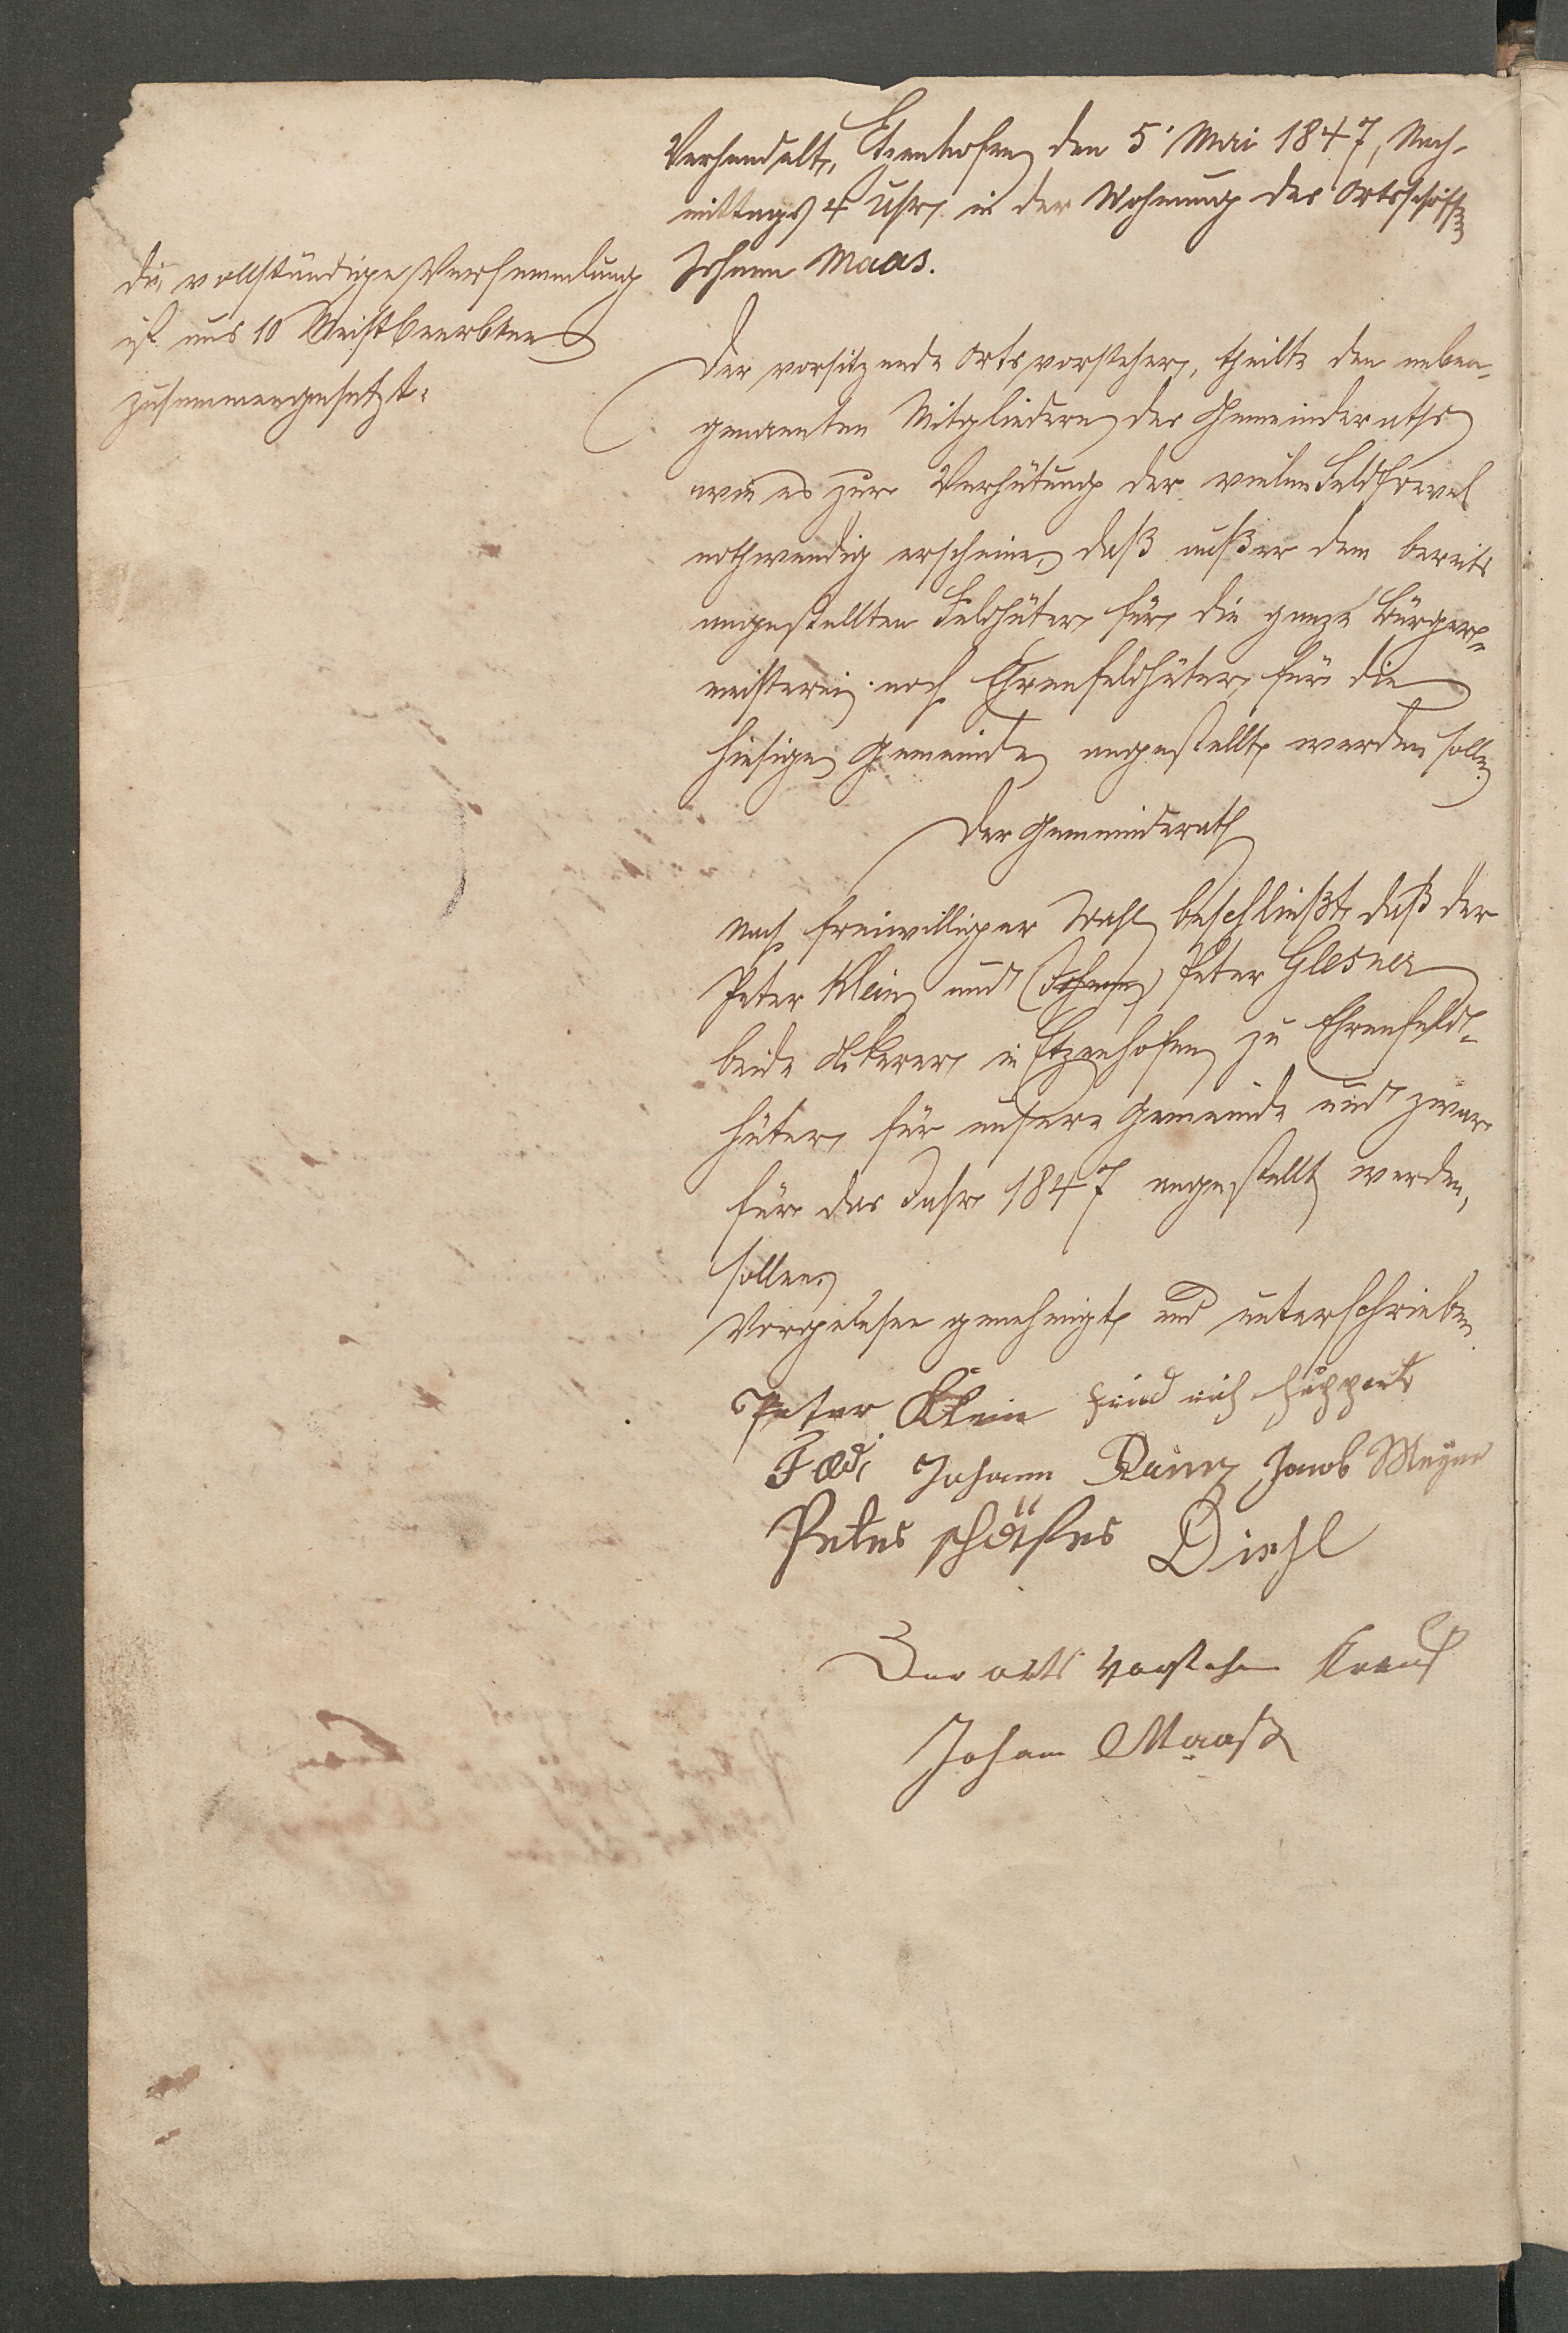 die vollständige Versammlung
ist aus 10 Meistbeerbten
zusammengesetzt.
Verhandelt, Etzenhofen den 5' Mai 1847, Nach-
mittags 4 Uhr, in der Wohnung des Ortsschöff
Johann Maas.
Der vorsitzende Ortsvorsteher, theilte den neben-
genannten Mitgliedern des Gemeinderaths
wie es zur Verhütung der vielen Feldfrevel
nothwendig erscheine, daß außer dem bereits
angestellten Feldhüter für die ganze Bürger-
meisterei noch Ehrenfeldhüter, für die
hiesige Gemeinde angestellt werden solle.
Der Gemeinderath
nach freiwilliger Wahl beschließt, daß der
Peter Klein und (Johann) Peter Glesner
beide Ackerer in Etzenhofen zu Ehrenfeld-
hüter, für unsere Gemeinde und zwar
für das Jahr 1847 angestellt werden,
sollen.
Vorgelesen genehmigt und unterschrieben
Peter Klein Huppert
Johann Jacob Meyer
Peter schäfer Diehl
Der orts Vorsteher
Johann Maaß